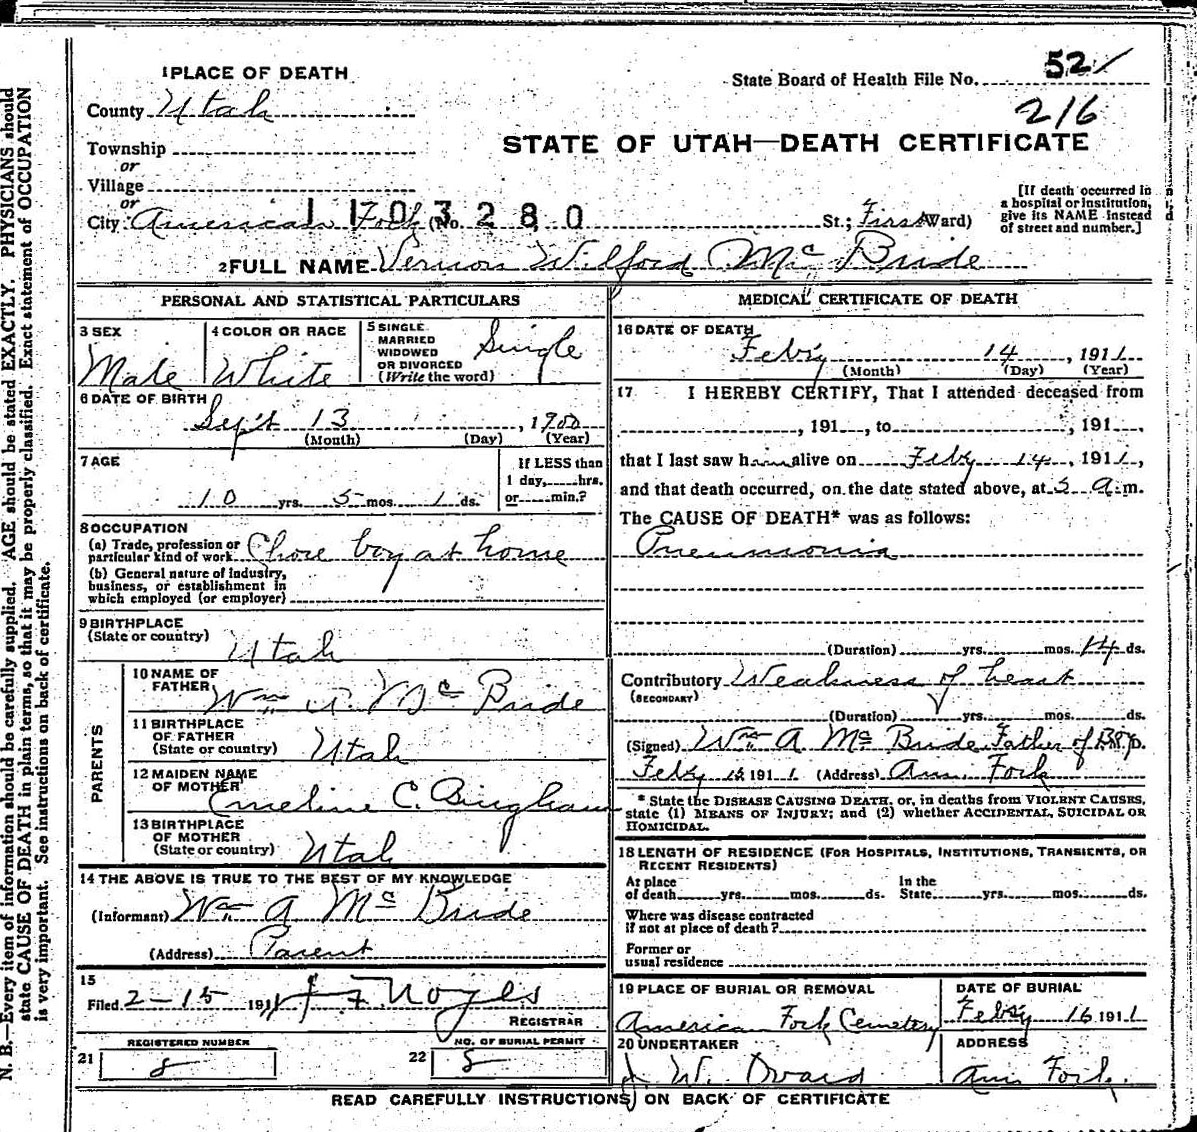 1 PLACE OF DEATH
State Board of Health File No. 52
216
County Utah
STATE OF UTAH—DEATH CERTIFICATE
Township
or
Village
or
City American Fork (No. St.; First Ward)
1103280
[If death occurred in a hospital or institution, give its NAME instead of street and number.]
2 FULL NAME Vernon Wilford McBride
PERSONAL AND STATISTICAL PARTICULARS
3 SEX Male
4 COLOR OR RACE White
5 SINGLE MARRIED WIDOWED OR DIVORCED (Write the word) Single
6 DATE OF BIRTH
Sept 13, 1900
(Month) (Day) (Year)
7 AGE
10 yrs. 5 mos. 1 ds.
If LESS than
1 day, hrs.
or min.?
8 OCCUPATION
(a) Trade, profession or
particular kind of work Chore boy at home
(b) General nature of industry,
business, or establishment in
which employed (or employer)
9 BIRTHPLACE
(State or country) Utah
PARENTS
10 NAME OF
FATHER Wm A. McBride
11 BIRTHPLACE
OF FATHER
(State or country) Utah
12 MAIDEN NAME
OF MOTHER Emeline C. Bingham
13 BIRTHPLACE
OF MOTHER
(State or country) Utah
14 THE ABOVE IS TRUE TO THE BEST OF MY KNOWLEDGE
(Informant) Wm A. McBride
(Address) Parent
15
Filed 2-15 1911 Noyes
REGISTRAR
REGISTERED NUMBER
21 8
NO. OF BURIAL PERMIT
22 8
MEDICAL CERTIFICATE OF DEATH
16 DATE OF DEATH
Feby 14, 1911
(Month) (Day) (Year)
17 I HEREBY CERTIFY, That I attended deceased from
, 191 , to , 191 ,
that I last saw him alive on Feby 14, 1911,
and that death occurred, on the date stated above, at 5 a.m.
The CAUSE OF DEATH* was as follows:
Pneumonia
(Duration) yrs. mos. 14 ds.
Contributory Weakness of heart
(SECONDARY)
(Duration) yrs. mos. ds.
(Signed) Wm A. McBride Father of Boy.
Feby 15 1911 (Address) Am. Fork
* State the DISEASE CAUSING DEATH, or, in deaths from VIOLENT CAUSES,
state (1) MEANS OF INJURY; and (2) whether ACCIDENTAL, SUICIDAL OR
HOMICIDAL.
18 LENGTH OF RESIDENCE (FOR HOSPITALS, INSTITUTIONS, TRANSIENTS, OR
RECENT RESIDENTS)
At place
of death yrs. mos. ds.
In the
State yrs. mos. ds.
Where was disease contracted
if not at place of death?
Former or
usual residence
19 PLACE OF BURIAL OR REMOVAL
American Fork Cemetery
DATE OF BURIAL
Feby 16 1911
20 UNDERTAKER
J. W.
ADDRESS
Am Fork.
READ CAREFULLY INSTRUCTIONS ON BACK OF CERTIFICATE
N. B.—Every item of information should be carefully supplied. AGE should be stated EXACTLY. PHYSICIANS should
state CAUSE OF DEATH in plain terms, so that it may be properly classified. Exact statement of OCCUPATION
is very important. See instructions on back of certificate.